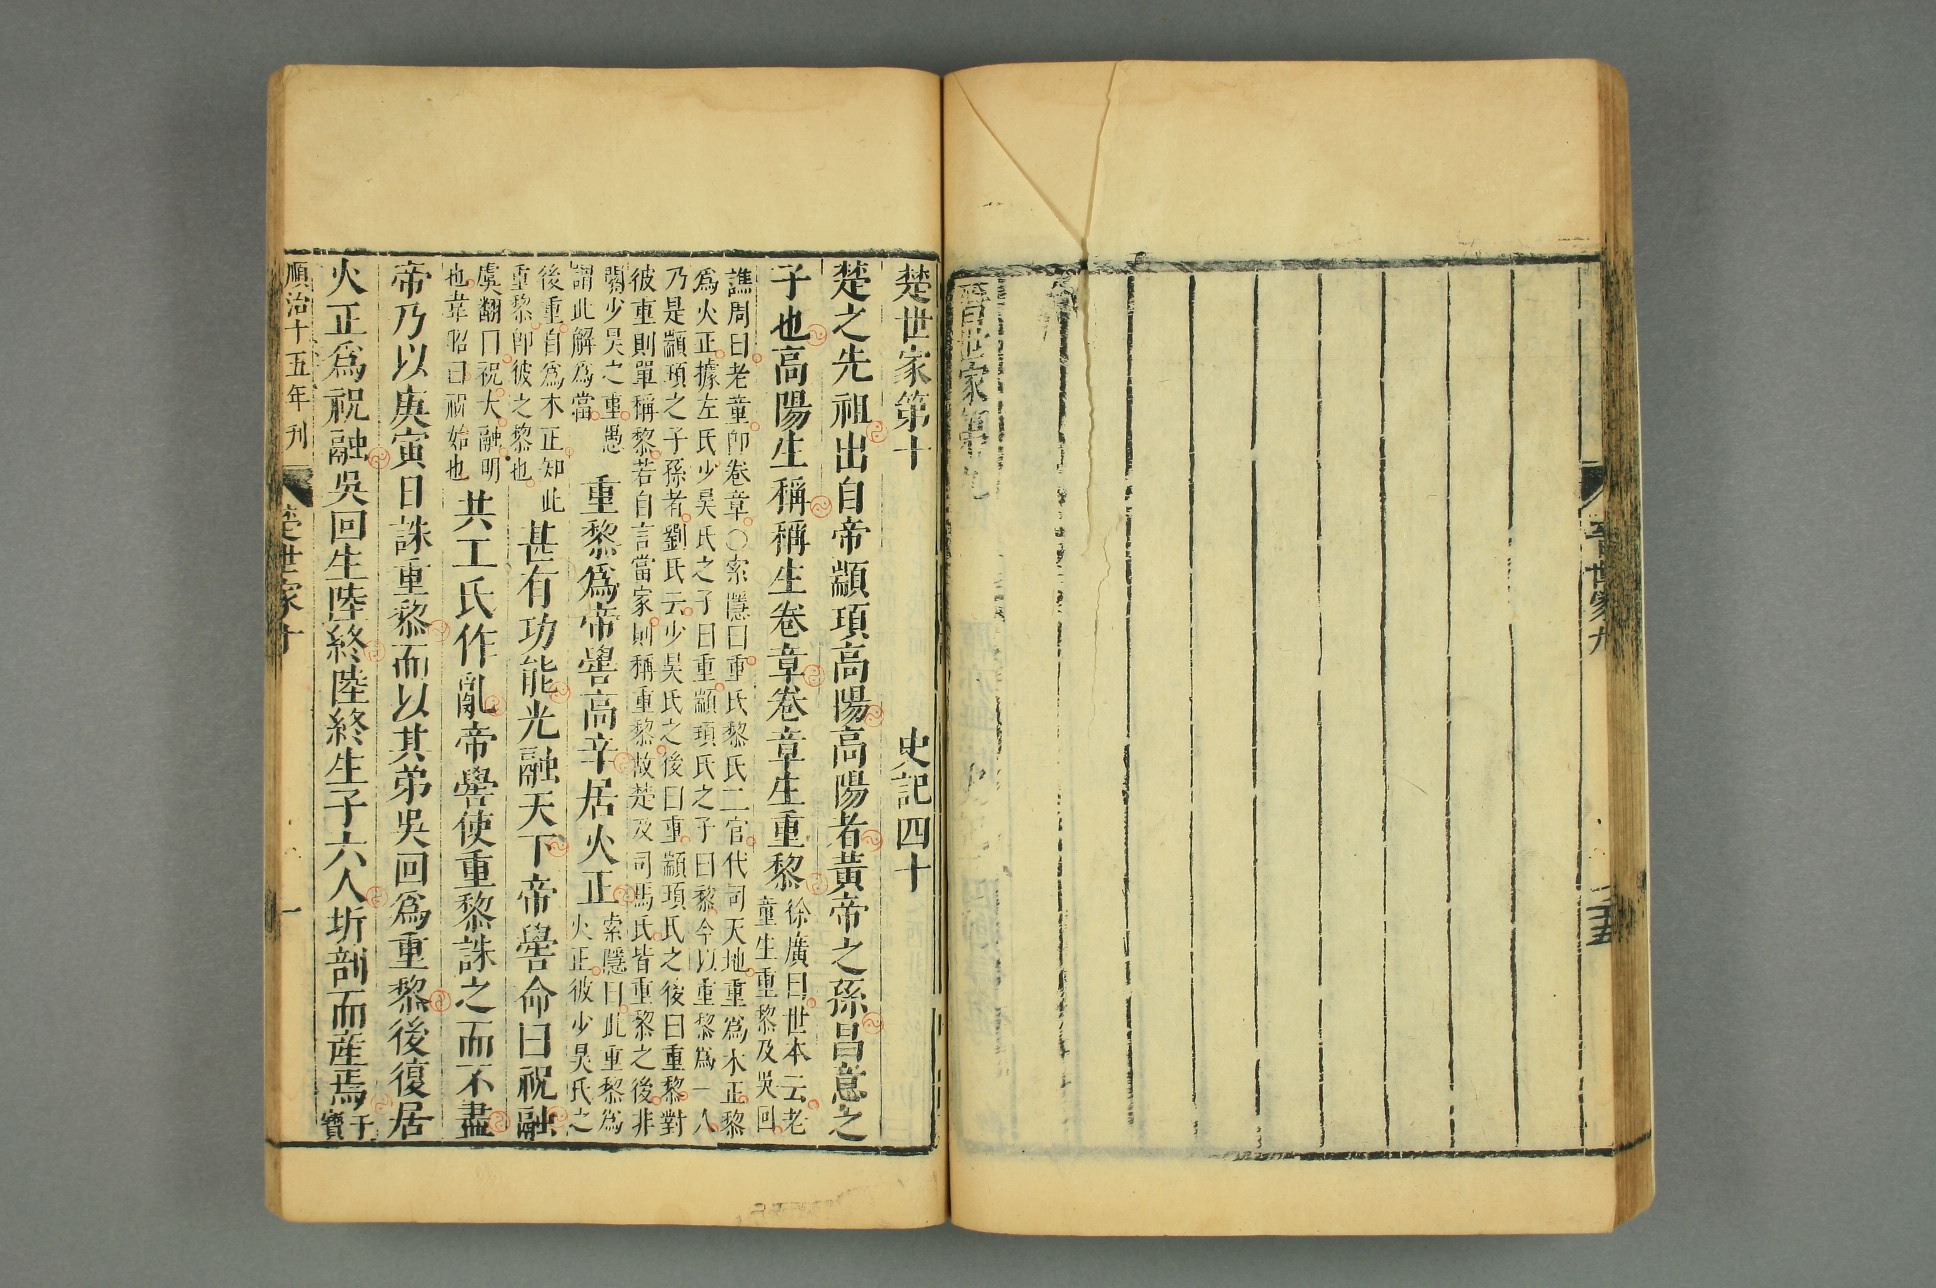 晉世家九
晉世家第九
楚世家第十　史記四十
楚之先祖出自帝顓頊高陽高陽者黃帝之孫昌意之
子也高陽生稱稱生卷章卷章生重黎
徐廣曰世本云老
童生重黎及吳回
譙周曰老童卽卷章○索隱曰重氏黎氏二官代司天地重爲木正黎
爲火正據左氏少昊氏之子曰重顓頊氏之子曰黎今以重黎爲一人
乃是顓頊之子孫者劉氏云少昊氏之後曰重顓頊氏之後曰重黎對
彼重則單稱黎若自言當家則稱重黎故楚及司馬氏皆重黎之後非
關少昊之重愚
謂此解爲當
重黎爲帝嚳高辛居火正
索隱曰此重黎爲
火正彼少昊氏之
後重自爲木正知此
重黎卽彼之黎也
甚有功能光融天下帝嚳命曰祝融
虞翻曰祝大融明
也韋昭曰祝始也
共工氏作亂帝嚳使重黎誅之而不盡
帝乃以庚寅日誅重黎而以其弟吳回爲重黎後復居
火正爲祝融吳回生陸終陸終生子六人坼剖而産焉
干
寶
順治十五年刊　楚世家十　一